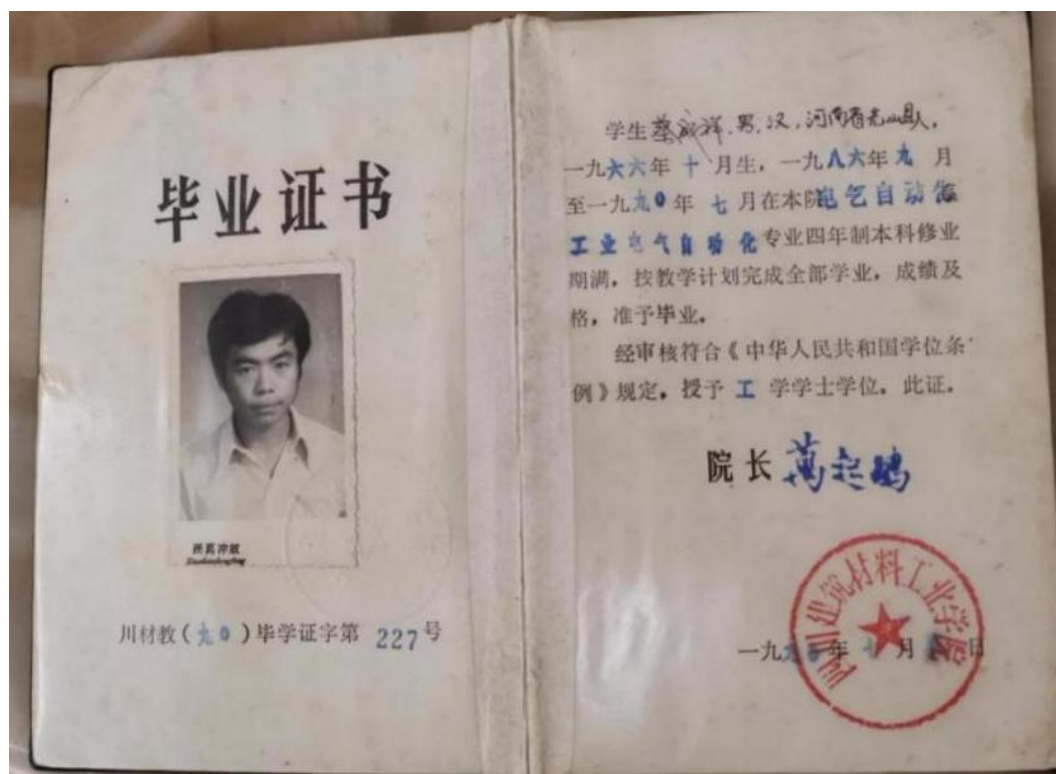 毕业证书
川材教(九0)毕学证字第 227号
学生蔡成祥,男,汉,河南省光山县人,
一九六六年 十 月生,一九八六年九 月
至一九九0年 七 月在本院电气自动化
工业电气自动化专业四年制本科修业
期满,按教学计划完成全部学业,成绩及
格,准予毕业。
经审核符合《中华人民共和国学位条
例》规定,授予 工 学学士学位。此证。
院长
四川建筑材料工业学院
一九九0年 七 月 日